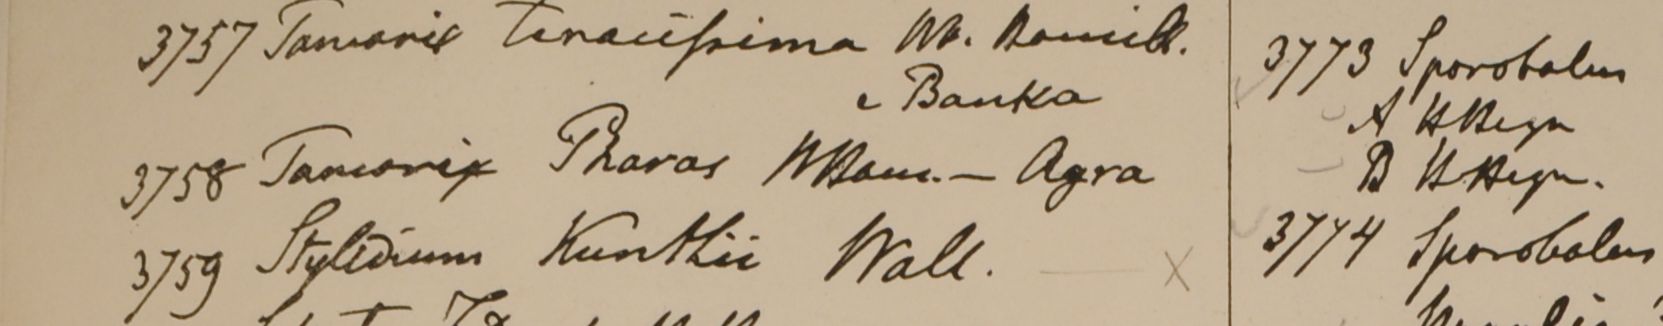 3757 Tamarix tenacissima Hb. Hamilt.
e Banka
3758 Tamarix Pharas HHam. — Agra
3759 Stylidium Kunthii Wall. — X
3773 Sporobolus
A HHeyn
B HHeyn.
3774 Sporobolus